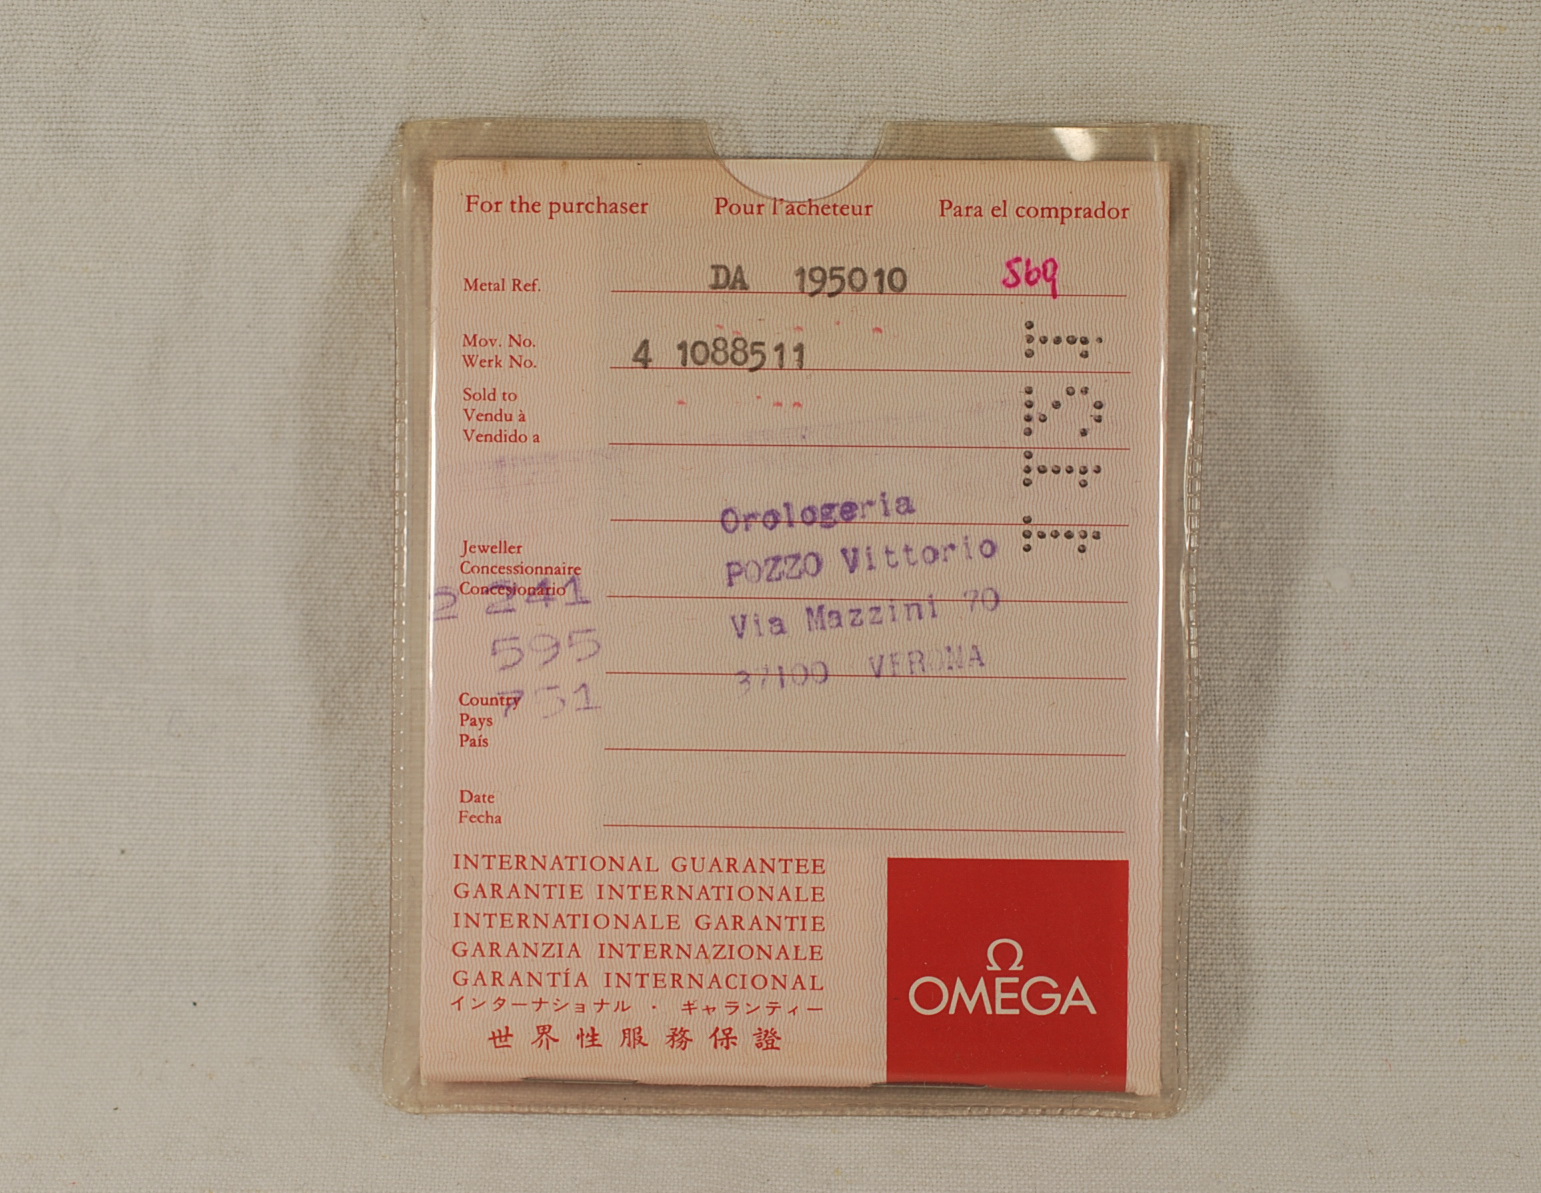 For the purchaser Pour l'acheteur Para el comprador
Metal Ref. DA 195010 569
Mov. No.
Werk No. 4 1088511
Sold to
Vendu à
Vendido a
Orologeria
Jeweller
POZZO Vittorio
Concessionnaire
Concesionario
2 241
Via Mazzini 70
595
37100 VERONA
Country
751
Pays
País
Date
Fecha
INTERNATIONAL GUARANTEE
GARANTIE INTERNATIONALE
INTERNATIONALE GARANTIE
GARANZIA INTERNAZIONALE
GARANTÍA INTERNACIONAL
インターナショナル · ギャランティー
世界性服務保證
Ω
OMEGA